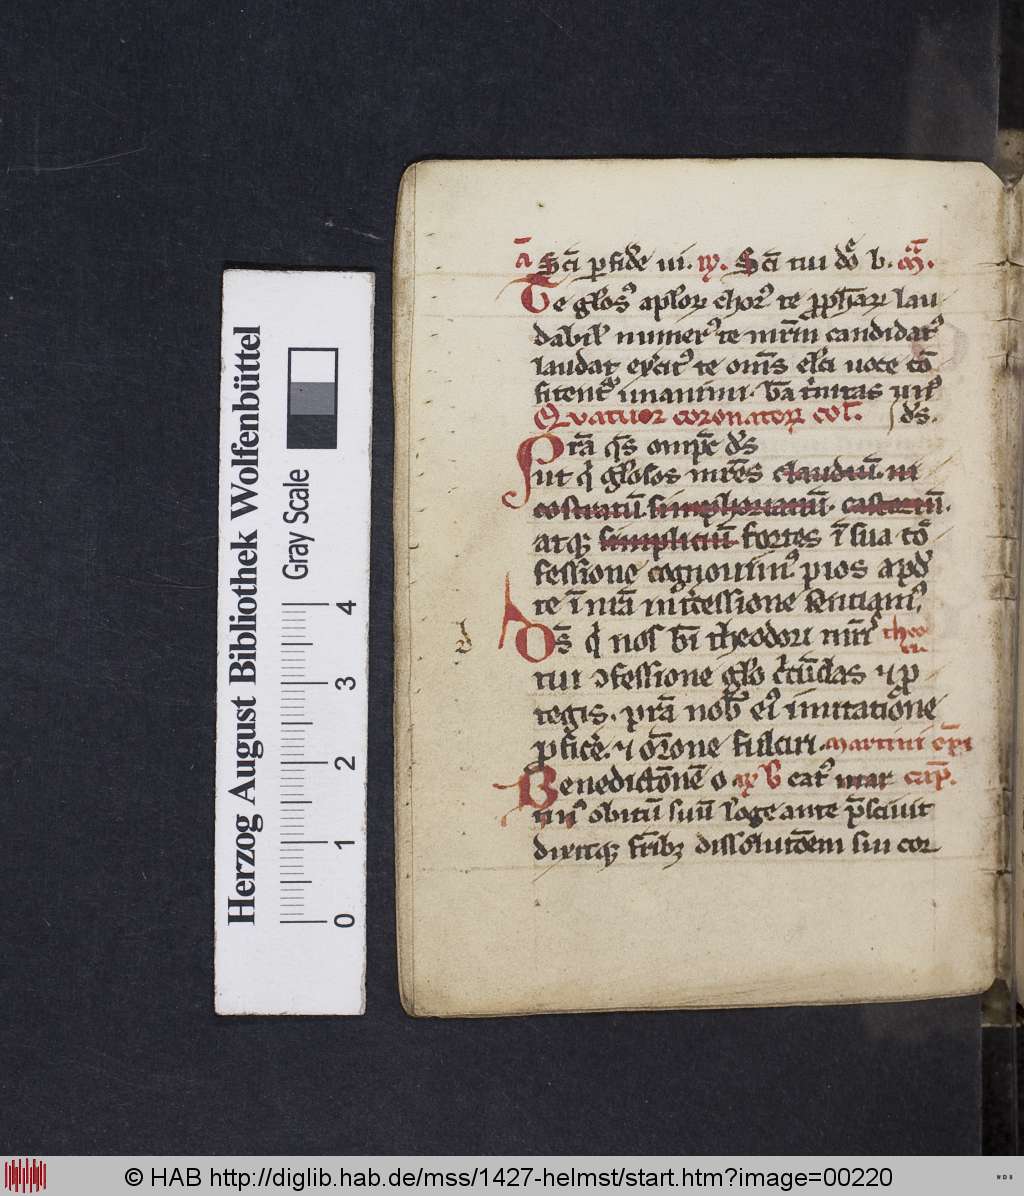 ā Sc̄i p fide ui. ꝶ. Sc̄i tui dō b. ā.
Te glosꝰ aplorꝝ chorꝰ te ꝓphaꝝ lau
dabil' numerꝰ te mr̄m candidatꝰ
laudat exc̓itꝰ te om̄s el̓ci uoce cō
fitentꝰ unanimi. b̄a t̓nitas unꝰ
Quatuor coronatoꝝ col̄. ds̄.
Pr̄a q̄s omp̄c ds̄
ut q̓ glosos mr̄es claudiū. ni
costratū. simphorianū. castoriū.
atqꝫ simpliciū fortes ī sua cō
fessione cognouimꝰ. pios apd̓
te ī nr̄a int̓cessione senciamꝰ.
Ds̄ q̓ nos b̄i theodori mr̄i theo
tui ↄfessione glo c̓cūdas ⁊ ꝓ
tegis. pr̄a nob̄ eiꝰ imitatiōne
ꝓfic̓e. ⁊ ōrone fulciri. martini ep̄i
Benedictōnē o aꝝ b̓ eatꝰ mar cap̄.
tinꝰ obitū suū loge ante p̄sciuit
dixitqꝫ fr̄ibꝫ dissolutōem sui cor
Herzog August Bibliothek Wolfenbüttel
Gray Scale
0 1 2 3 4
© HAB http://diglib.hab.de/mss/1427-helmst/start.htm?image=00220